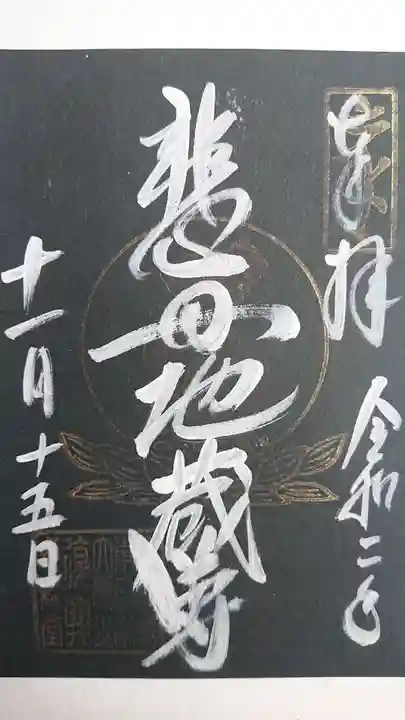 奉拝
令和二年
悲母地蔵尊
十一月十五日